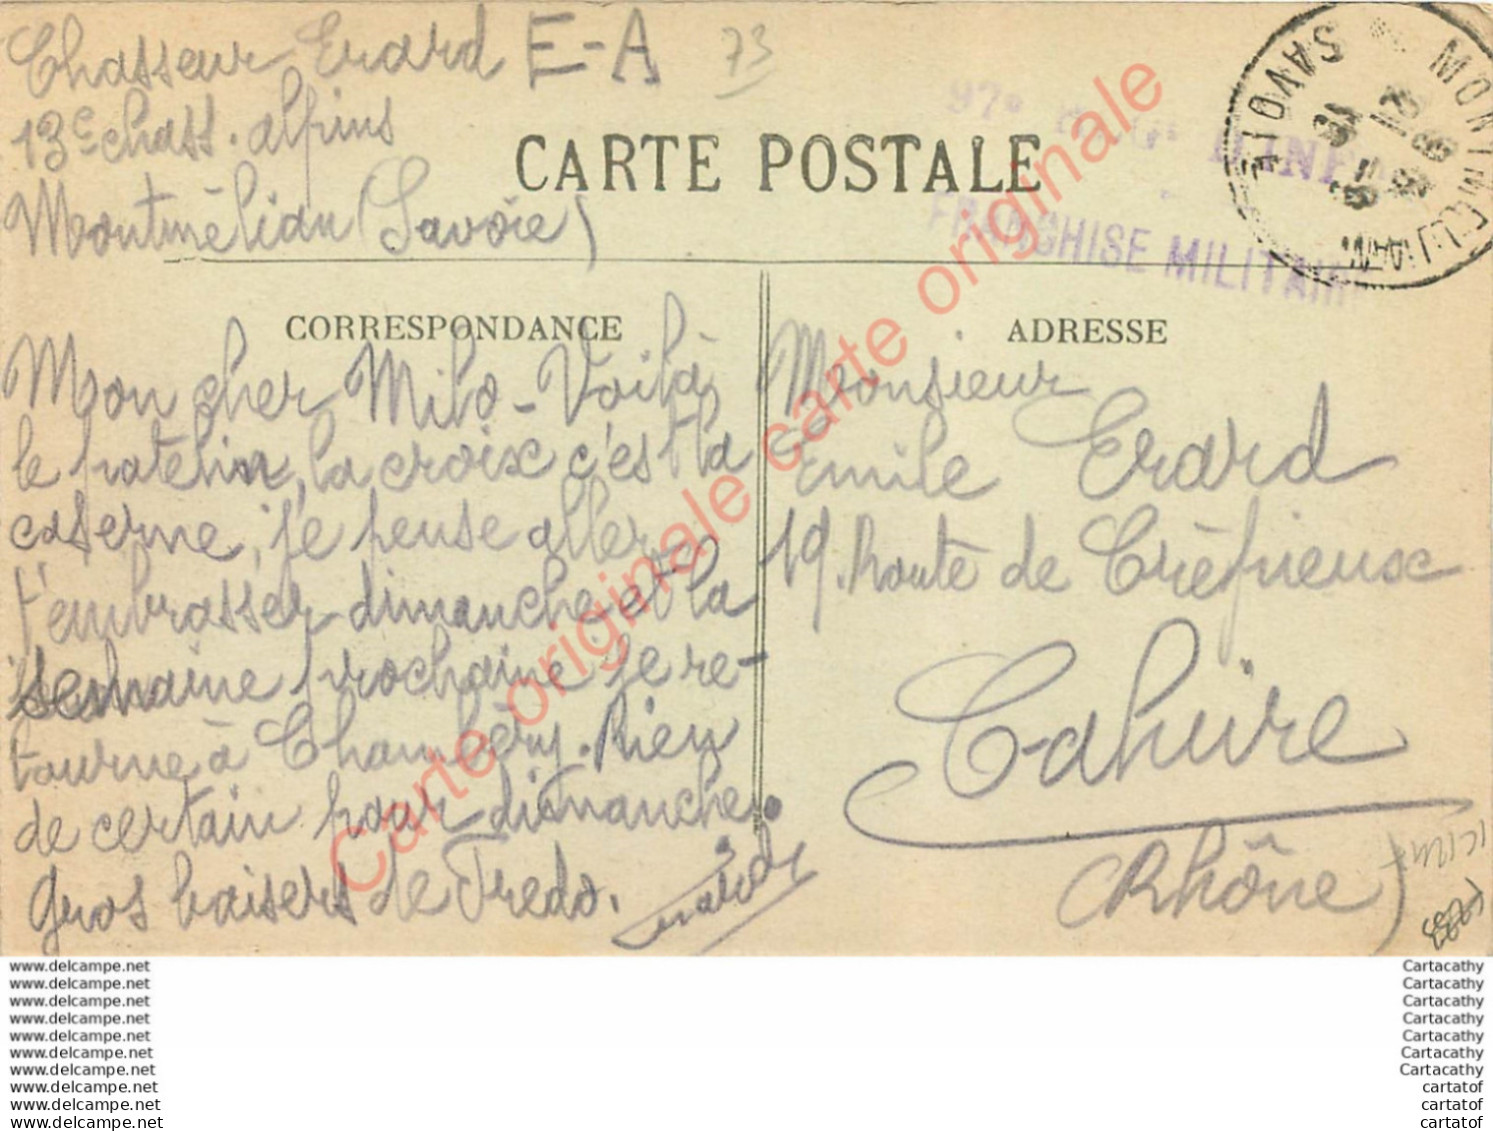 Chasseur Erard E-A 73
13e chass. alpins
Montmélian (Savoie)
CARTE POSTALE
97e D'INF
FRANCHISE MILITAIR
MONTMELIAN
SAVOIE
CORRESPONDANCE
Mon cher Milo - Voilà
le patelin, la croix c'est la
caserne, je pense aller
t'embrasser dimanche et la
semaine prochaine je re-
tourne à Chambéry. Rien
de certain pour dimanche.
Gros baisers de Fredo.
ADRESSE
Monsieur
Emile Erard
19. Route de Crépieux
Caluire
(Rhône)
Carte originale carte originale
www.delcampe.net
www.delcampe.net
www.delcampe.net
www.delcampe.net
www.delcampe.net
www.delcampe.net
www.delcampe.net
www.delcampe.net
www.delcampe.net
www.delcampe.net
Cartacathy
Cartacathy
Cartacathy
Cartacathy
Cartacathy
Cartacathy
Cartacathy
cartatof
cartatof
cartatof